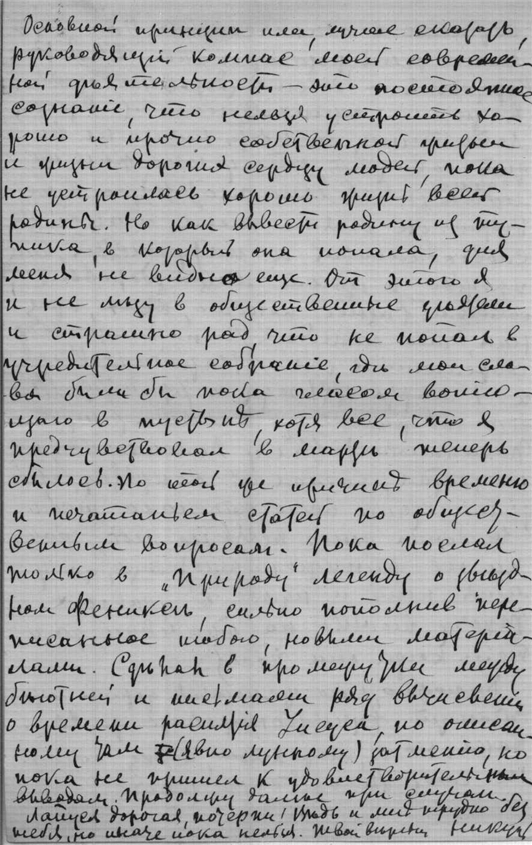 Основной принцип или, лучше сказать,
руководящій компас моей современ-
ной дѣятельности — это постоянное
сознаніе, что нельзя устроить хо-
рошо и прочно собственной жизни
и жизни дорогих сердцу людей, пока
не устроилась хорошо жизнь всей
родины. Но как вывести родину из ту-
пика, в который она попала, для
меня не видно еще. От этого я
и не лѣзу в общественные дѣятели
и страшно рад, что не попал в
учредительное собраніе, гдѣ мои сло-
ва были бы пока гласом вопію-
щаго в пустынѣ, хотя все, что я
предчувствовал в мартѣ теперь
сбылось. По этой же причинѣ временю
и печатаньем статей по общест-
венным вопросам. Пока послал
только в „Природу" легенду о звѣзд-
ном Фениксѣ, сильно пополнив пере-
писанное тобою, новыми матеріа-
лами. Сдѣлал в промежутки между
бытней и письмами ряд вычислений
о времени распятія Іисуса, по описан-
ному там (явно лунному) затменію, но
пока не пришел к удовлетворительным
выводам. Продолжу дальше при случаѣ.
дорогая, потерпи! Вѣдь и мнѣ трудно без
тебя, но иначе пока нельзя. Твой